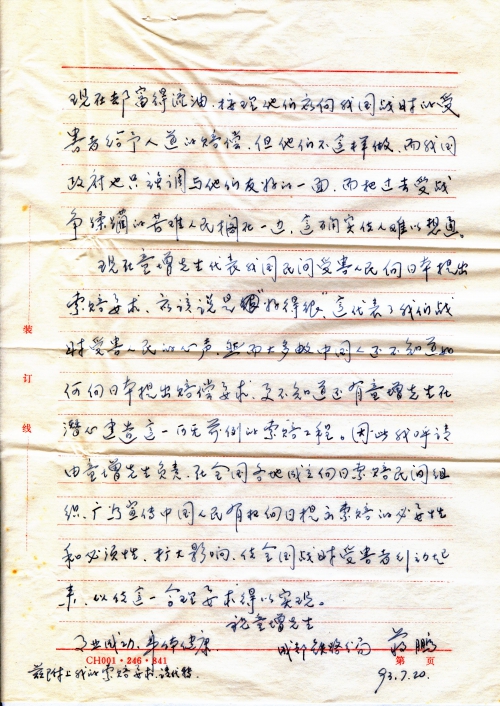 现在却富得流油，按理他们应向我国战时的受
害者给予人道的赔偿，但他们不这样做，而我国
政府也只强调与他们友好的一面，而把过去受战
争蹂躏的苦难人民搁在一边，这确实使人难以想通。
现在童增先生代表我国民间受害人民向日本提出
索赔要求，应该说是很"好得很"，这代表了我们战
时受害人民的心声，然而大多数中国人还不知道如
何向日本提出赔偿要求，更不知道还有童增先生在
潜心建造这一百无前例的索赔工程。因此我呼请
由童增先生负责，在全国各地成立向日索赔民间组
织，广为宣传中国人民有权向日提出索赔的必要性
和必须性，扩大影响，使全国战时受害者行动起
来，以使这一合理要求得以实现。
祝童增先生
事业成功，身体健康
成都铁路局 蒋鹏
CH001·246·841
第 页
兹附上我的索赔要求，请代转。
93.7.20.
装
订
线